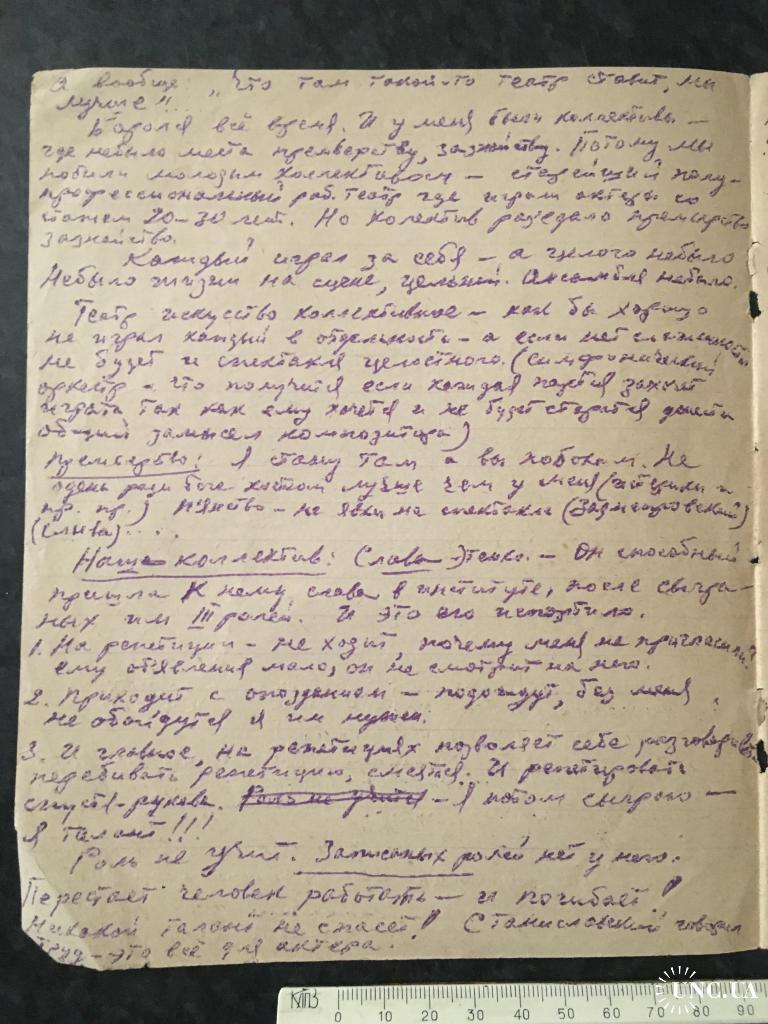 А вообще „Что там такой-то театр ставит, мы
лучше"!
Боролся всё время. И у меня были коллективы –
где небыло места премьерству, зазнайству. Потому мы
побили молодым коллективом – старейший полу-
профессиональный раб. театр где играли актеры со
стажем 20-30 лет. Но колектив разъедало премьерство
зазнайство.
Каждый играл за себя – а целого небыло
Небыло жизни на сцене, цельной. Ансамбля небыло.
Театр искусство коллективное – как бы хорошо
не играл каждый в отдельность – а если нет слаженности
не будет и спектакля целостного. (симфонический
оркестр – что получится если каждая захочет
играть так как ему хочется и не будет старатся донести
общий замысел композитора)
Премьерство: Я стану там а вы по бокам. Не
одень ради бога костюм лучше чем у меня (
пр. пр.) пьянство – не явки на спектакли
(Слава) . . . .
Наш коллектив: Слава – Он способный
пришла к нему слава в институте, после сыгра-
ных им III ролей. И это его испортило.
1. На репетиции – не ходит, почему меня не пригласили?
ему объявления мало, он не смотрит на него.
2. Приходит с опозданием – подождут, без меня
не обойдутся я им нужен.
3. И главное, на репетициях позволяет себе разговаривать
перебивать репетицию, смеятся. И репетировать
спустя-рукава. Роль не учит – Я потом сыграю –
я талант!!!
Роль не учит. Записаных ролей нет у него.
Перестает человек работать – и погибает!
Никакой талант не спасет! Станиславский говорил
Труд – это всё для актера.
МПЗ
0 10 20 30 40 50 60 70 80 90
UNC.UA